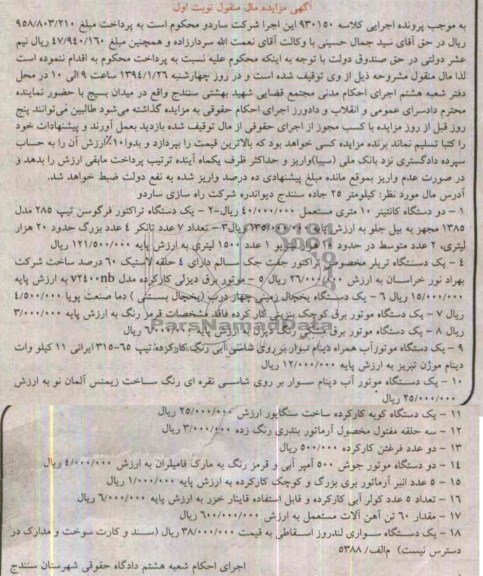 آگهی مزایده مال منقول نوبت اول
به موجب پرونده اجرایی کلاسه ۹۳۰۱۵۰ این اجرا شرکت ساردو محکوم است به پرداخت مبلغ ۹۵۸/۸۰۳/۲۱۰
ریال در حق آقای سید جمال حسینی با وکالت آقای نعمت الله سردارزاده و همچنین مبلغ ۴۷/۹۴۰/۱۶۰ ریال نیم
عشر دولتی در حق صندوق دولت با توجه به اینکه محکوم علیه نسبت به پرداخت محکوم به اقدام ننموده است
لذا مال منقول مشروحه ذیل از وی توقیف شده است و در روز چهارشنبه ۱۳۹۴/۱/۲۶ ساعت ۹ الی ۱۰ در محل
دفتر شعبه هشتم اجرای احکام مدنی مجتمع قضایی شهید بهشتی سنندج واقع در میدان بسیج با حضور نماینده
محترم دادسرای عمومی و انقلاب و دادورز اجرای احکام حقوقی به مزایده گذاشته می‌شود طالبین می‌توانند پنج
روز قبل از روز مزایده با کسب مجوز از اجرای حقوقی از مال توقیف شده بازدید بعمل آورند و پیشنهادات خود
را کتبا تسلیم نماند برنده مزایده کسی خواهد بود که بالاترین قیمت را بپردازد و بدوا ۱۰٪ ارزش آن را به حساب
سپرده دادگستری نزد بانک ملی (سیبا) واریز و حداکثر ظرف یکماه آینده ترتیب پرداخت مابقی ارزش را بدهد و
در صورت عدم واریز بموقع مانده مبلغ پیشنهادی ده درصد واریز شده به نفع دولت ضبط خواهد شد.
آدرس مال مورد نظر: کیلومتر ۲۵ جاده سنندج دیواندره شرکت راه سازی ساردو
۱ – دو دستگاه کانتینر ۱۰ متری مستعمل ۴۰/۰۰۰/۰۰۰ ریال-۲ – یک دستگاه تراکتور فرگوسن تیپ ۲۸۵ مدل
۱۳۸۵ مجهز به بیل جلو به ارزش ۱۳۵/۰۰۰/۰۰۰ ریال ۳– تعداد ۷ عدد تانکر ۴ عدد بزرگ حدود ۲۰ هزار
لیتری، ۲ عدد متوسط در حدود لیتری و ۱ عدد ۱۵۰۰ لیتری به ارزش پایه ۱۲۱/۵۰۰/۰۰۰ ریال
۴ – یک دستگاه تریلر مخصوص تراکتور جفت جک سالم دارای ۴ حلقه لاستیک ۶۰ درصد ساخت شرکت
بهراد نور خراسان به ارزش ۲۶/۰۰۰/۰۰۰ ریال ۵ – موتور برق دیزلی کارکرده مدل ۷۲۴۰۰nb به ارزش پایه
۱۵/۰۰۰/۰۰۰ ریال ۶ – یک دستگاه یخچال زمینی چهار درب (یخچال بستنی) دما صنعت پویا ۴/۵۰۰/۰۰۰
ریال ۷ – یک دستگاه موتور برق کوچک بنزینی کار کرده فاقد مشخصات قرمز رنگ به ارزش پایه ۳/۰۰۰/۰۰۰
ریال ۸ – یک دستگاه موتور برق ریال
۹ – یک دستگاه موتورآب همراه دینام سوار بر روی شاسی آبی رنگ کارکرده تیپ ۶۵-۳۱۵ ایرانی ۱۱ کیلو وات
دینام موژن تبریز به ارزش پایه ۱۲/۰۰۰/۰۰۰ ریال
۱۰ – یک دستگاه موتور آب دینام سوار بر روی شاسی نقره ای رنگ ساخت زیمنس آلمان نو به ارزش
۲۵/۰۰۰/۰۰۰ ریال
۱۱ – یک دستگاه کوپه کارکرده ساخت سنگاپور ارزش ۲۵/۰۰۰/۰۰۰ ریال
۱۲ – سه حلقه مفتول محصول آرماتور بندری رنگ زده ۳/۰۰۰/۰۰۰ ریال
۱۳ – دو عدد فرغتن کارکرده ۵۰۰/۰۰۰ ریال
۱۴ – دو دستگاه موتور جوش ۵۰۰ آمپر آبی و قرمز رنگ به مارک فامیلران به ارزش ۴/۰۰۰/۰۰۰ ریال
۱۵ – ۵ عدد انبر آرماتور بری بزرگ و کوچک کارکرده به ارزش پایه ۱/۰۰۰/۰۰۰ ریال
۱۶ – تعداد ۵ عدد کولر آبی کارکرده و قابل استفاده قاینار خزر به ارزش پایه ۶/۰۰۰/۰۰۰ ریال
۱۷ – مقدار ۶۰ تن آهن آلات مستعمل به ارزش ۶۰۰/۰۰۰/۰۰۰ ریال
۱۸ – یک دستگاه سواری لندروز اسقاطی به قیمت ۳۸/۰۰۰/۰۰۰ ریال (سند و کارت سوخت و مدارک در
دسترس نیست) م‌الف/ ۵۳۸۸
اجرای احکام شعبه هشتم دادگاه حقوقی شهرستان سنندج
ParsNamadData